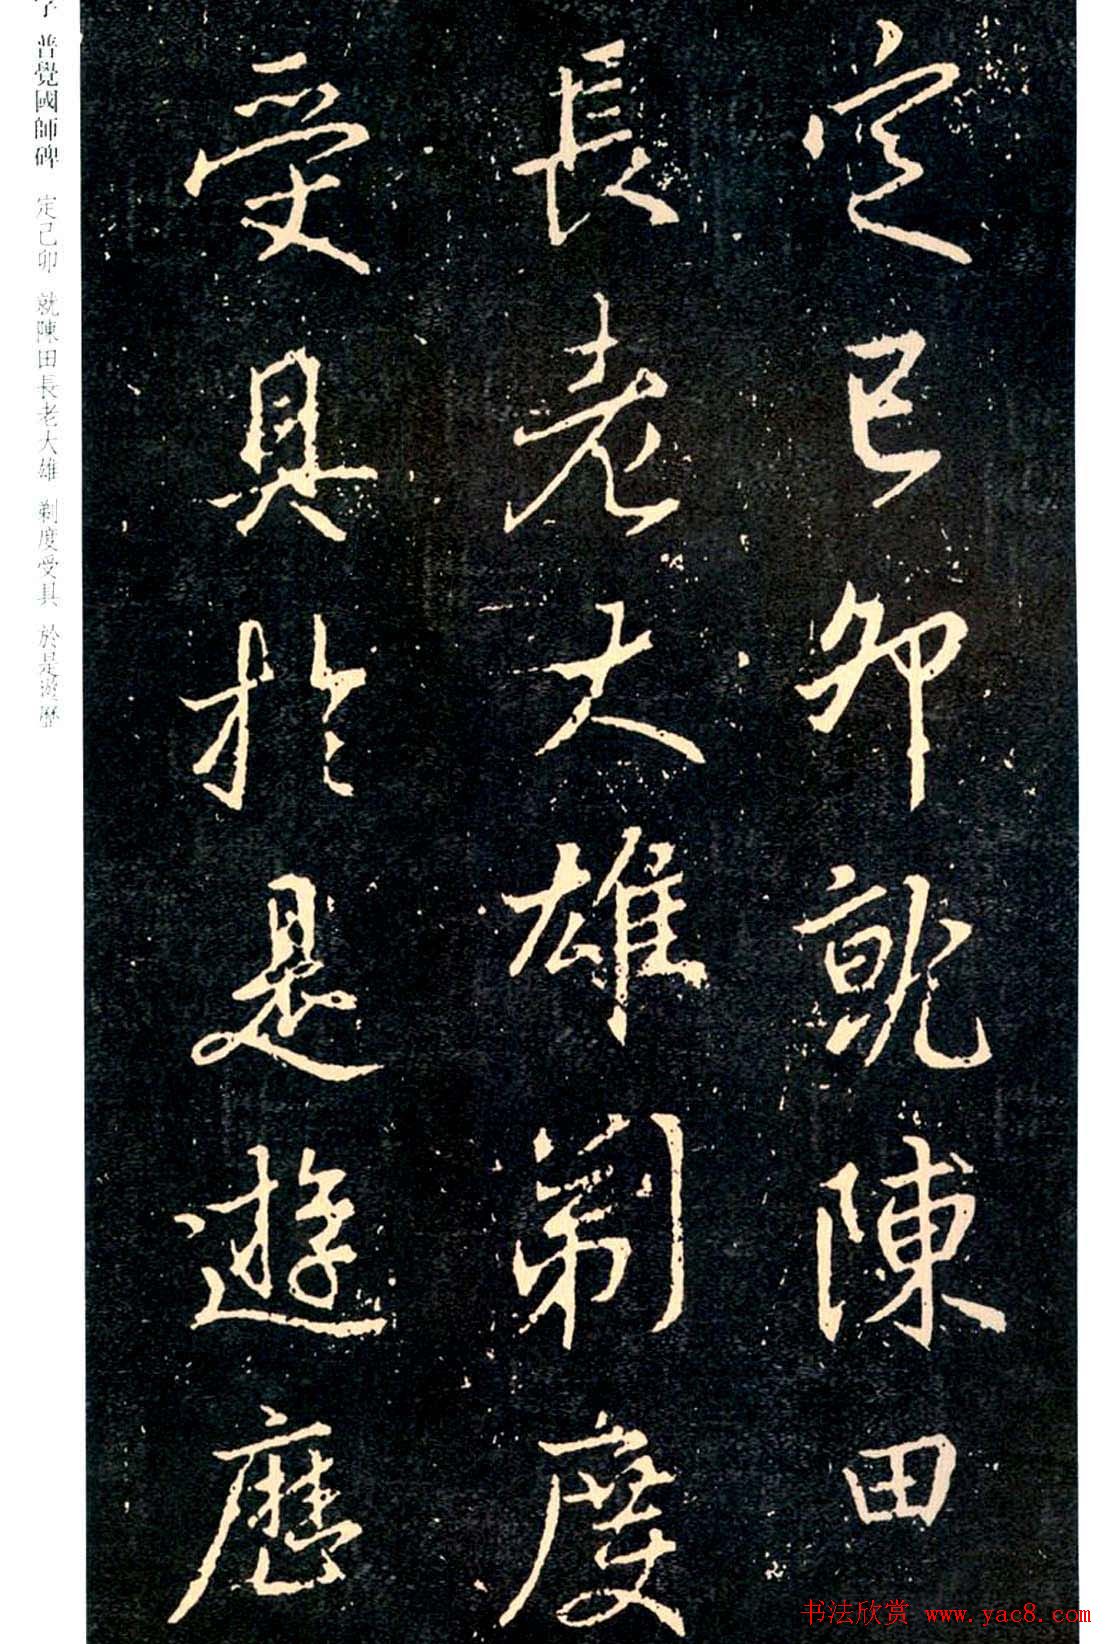 定己卯就陳田
長老大雄剃度
受具於是遊歷
普覺國師碑 定己卯 就陳田長老大雄 剃度受具 於是遊歷
书法欣赏 www.yac8.com